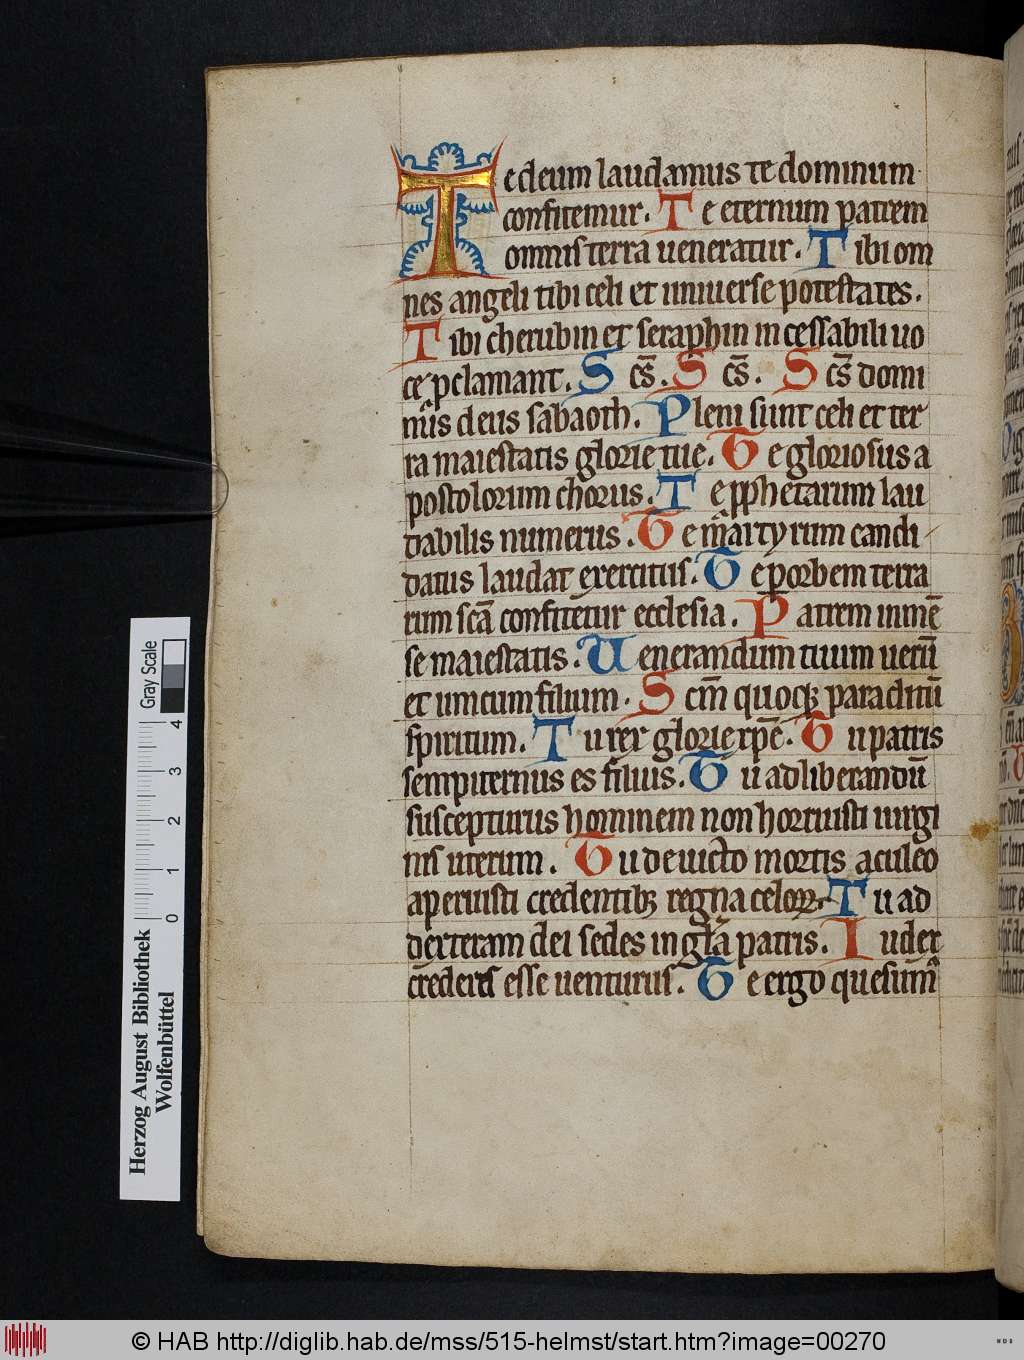 Te deum laudamus te dominum
confitemur. Te eternum patrem
omnis terra ueneratur. Tibi om
nes angeli tibi celi et uniuerse potestates.
Tibi cherubin et seraphin incessabili uo
ce ꝓclamant. Scs̄. Scs̄. Scs̄ domi
nus deus sabaoth. Pleni sunt celi et ter
ra maiestatis glorie tue. Te gloriosus a
postolorum chorus. Te ꝓphetarum lau
dabilis numerus. Te martyrum candi
datus laudat exercitus. Te ꝑ orbem terra
rum scā confitetur ecclesia. Patrem inmē
se maiestatis. Uenerandum tuum uerū
et unicum filium. Scm̄ quoqꝫ paraclitū
spiritum. Tu rex glorie xp̄e. Tu patris
sempiternus es filius. Tu ad liberandū
suscepturus hominem non horruisti uirgi
nis uterum. Tu deuicto mortis aculeo
aperuisti credentibꝫ regna celoꝝ. Tu ad
dexteram dei sedes in gl̄a patris. Iudex
crederis esse uenturus. Te ergo quesum᷒
Gray Scale
4
3
2
1
0
Herzog August Bibliothek
Wolfenbüttel
© HAB http://diglib.hab.de/mss/515-helmst/start.htm?image=00270